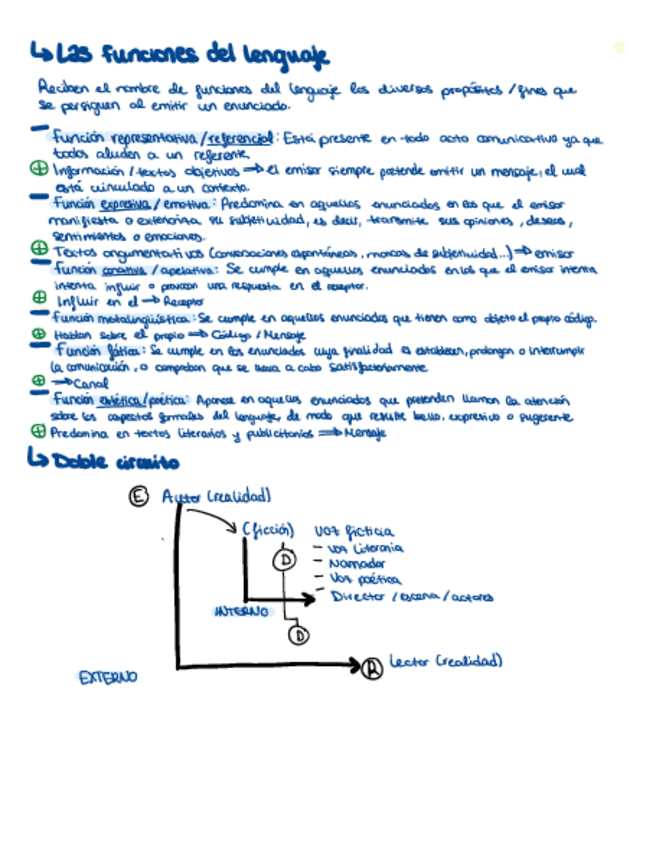 ↳ Las funciones del lenguaje
Reciben el nombre de funciones del lenguaje los diversos propósitos / fines que
se persiguen al emitir un enunciado.
– Función representativa / referencial: Está presente en todo acto comunicativo ya que
todos aluden a un referente.
⊕ Información / textos objetivos ⇒ el emisor siempre pretende emitir un mensaje, el cual
está vinculado a un contexto.
– Función expresiva / emotiva: Predomina en aquellos enunciados en los que el emisor
manifiesta o exterioriza su subjetividad, es decir, transmite sus opiniones, deseos,
sentimientos o emociones.
⊕ Textos argumentativos (conversaciones espontáneas, marcas de subjetividad...) ⇒ emisor
– Función conativa / apelativa: Se cumple en aquellos enunciados en los que el emisor intenta
intenta influir o provocar una respuesta en el receptor.
⊕ Influir en el → Receptor
– Función metalingüística: Se cumple en aquellos enunciados que tienen como objeto el propio código.
⊕ Hablan sobre el propio ⇒ Código / Mensaje
– Función fática: Se cumple en los enunciados cuya finalidad es establecer, prolongar o interrumpir
la comunicación, o comprobar que se lleva a cabo satisfactoriamente
⊕ → Canal
– Función estética / poética: Aparece en aquellos enunciados que pretenden llamar la atención
sobre los aspectos formales del lenguaje, de modo que resulte bello, expresivo o sugerente
⊕ Predomina en textos literarios y publicitarios ⇒ Mensaje
↳ Doble circuito
E Autor (realidad)
(ficción) voz ficticia
– Voz literaria
D – Narrador
– Voz poética
– Director / escena / actores
INTERNO
D
R Lector (realidad)
EXTERNO